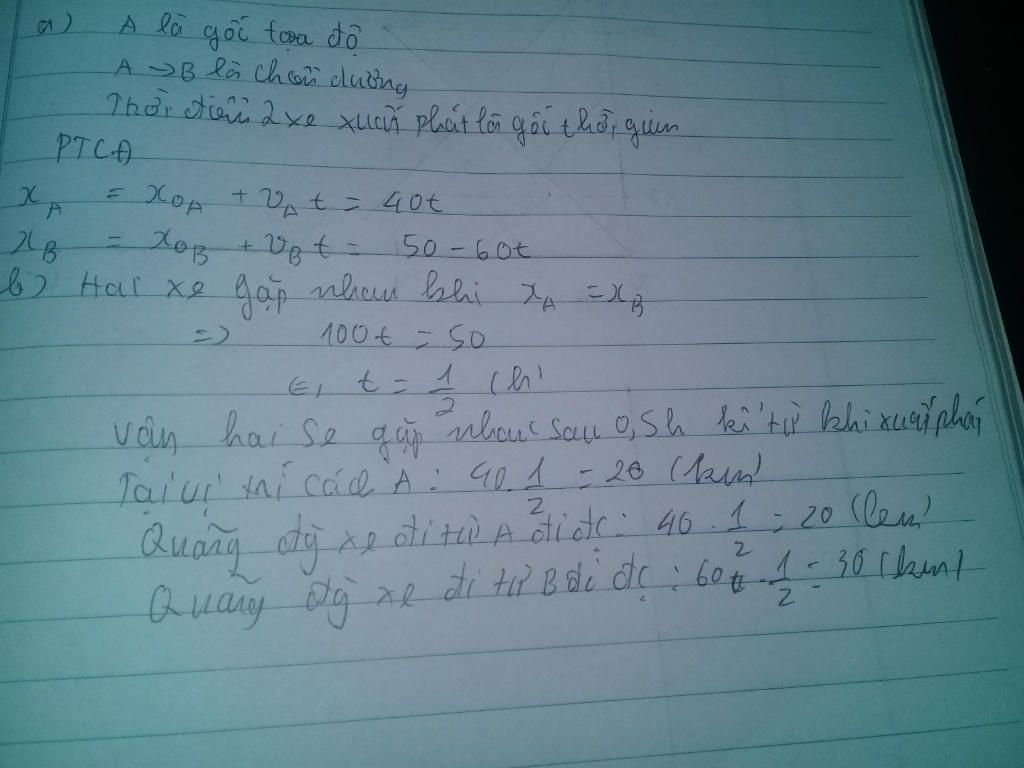 a) A là gốc tọa độ
A → B là chiều dương
Thời điểm 2 xe xuất phát là gốc thời gian
PTCĐ
x_A = x_{0A} + v_A t = 40t
x_B = x_{0B} + v_B t = 50 - 60t
b) Hai xe gặp nhau khi x_A = x_B
=> 100t = 50
t = 1/2 (h)
Vậy hai xe gặp nhau sau 0,5h kể từ khi xuất phát
Tại vị trí cách A: 40. 1/2 = 20 (km)
Quãng đg xe đi từ A đi đc: 40 . 1/2 = 20 (km)
Quãng đg xe đi từ B đi đc: 60 . 1/2 = 30 (km)